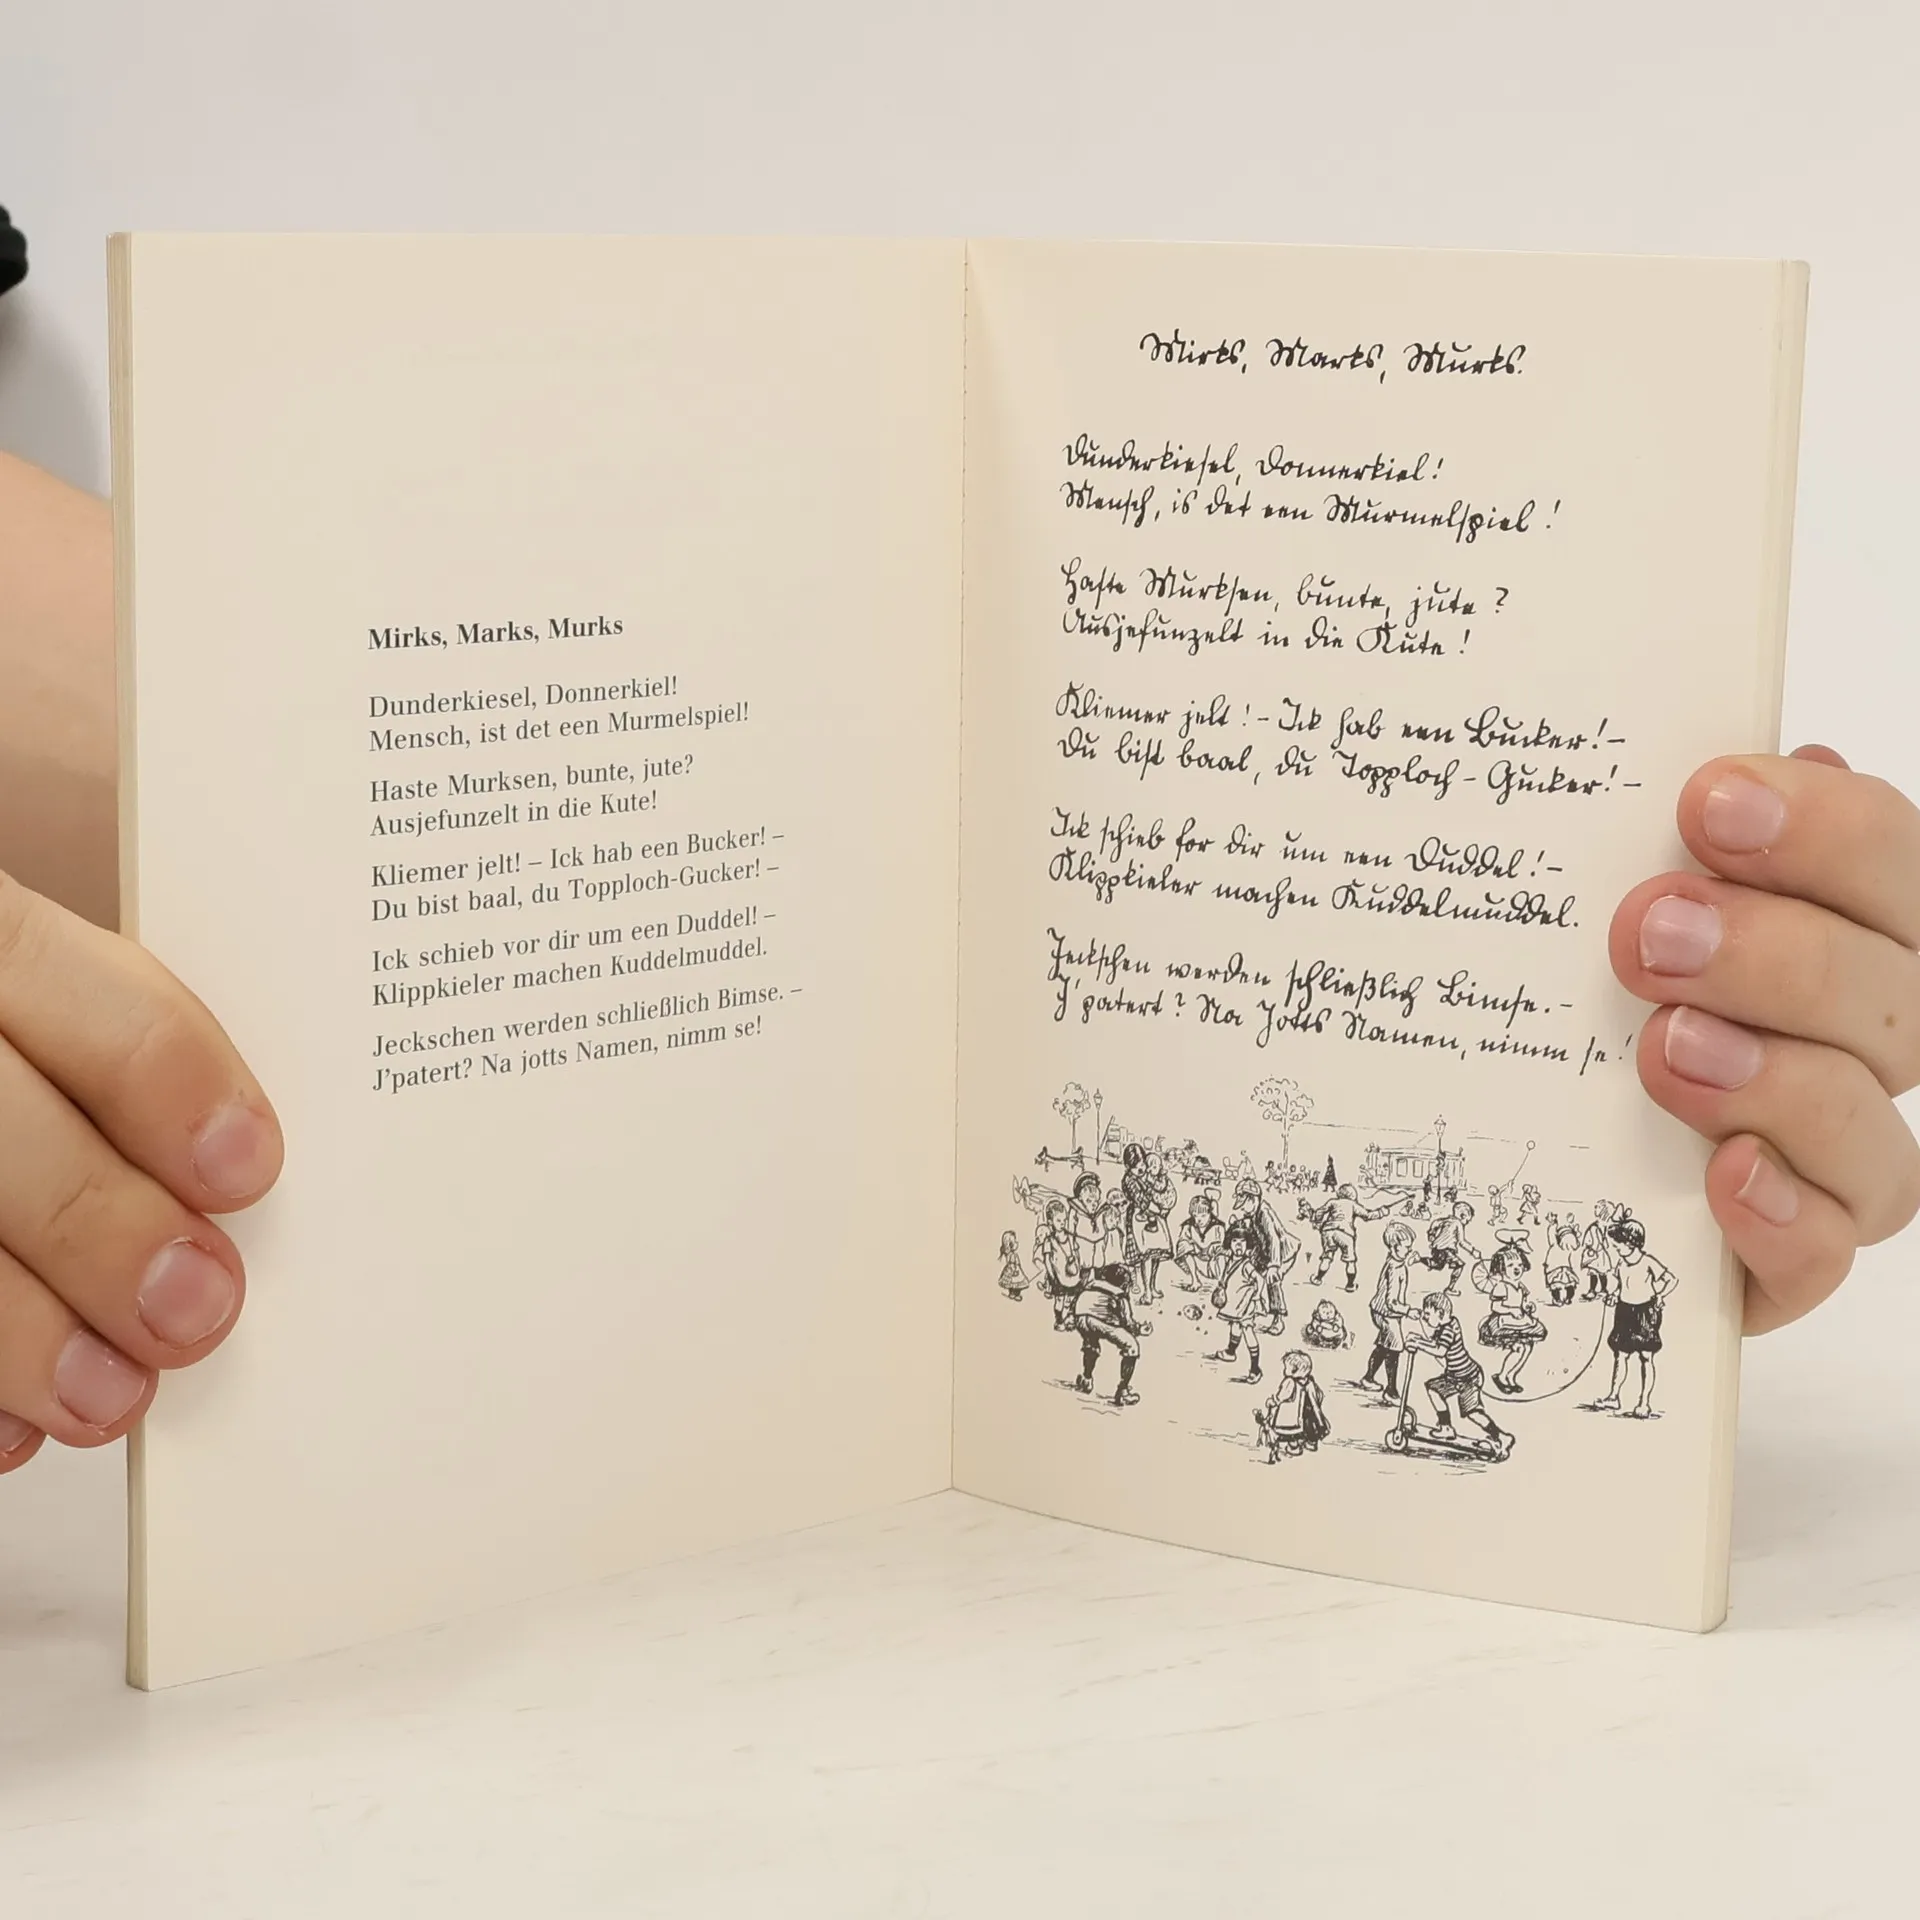 Mirks, Marks, Murks
Dunderkiesel, Donnerkiel!
Mensch, ist det een Murmelspiel!
Haste Murksen, bunte, jute?
Ausjefunzelt in die Kute!
Kliemer jelt! – Ick hab een Bucker! –
Du bist baal, du Topploch-Gucker! –
Ick schieb vor dir um een Duddel! –
Klippkieler machen Kuddelmuddel.
Jeckschen werden schließlich Bimse. –
J'patert? Na jotts Namen, nimm se!
Mirks, Marks, Murks.
Dunderkiesel, Donnerkiel!
Mensch, is det een Murmelspiel!
Haste Murksen, bunte, jute?
Ausjefunzelt in die Kute!
Kliemer jelt! – Ick hab een Bucker! –
Du bist baal, du Topploch-Gucker! –
Ick schieb for dir um een Duddel! –
Klippkieler machen Kuddelmuddel.
Jeckschen werden schließlich Bimse. –
J'patert? Na Jotts Namen, nimm se!